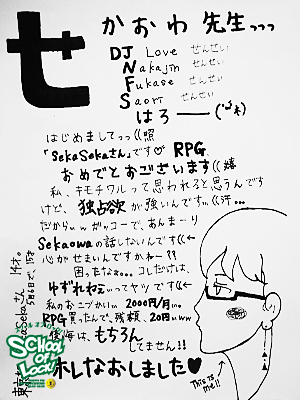 せ かおわ 先生っっっ
DJ Love せんせい
Nakajin せんせい
Fukase せんせい
Saori せんせい
はろー
はじめましてっっ((照
「SekaSekaさん」です♡ RPG
おめでとおございます((嬉
私、キモチワルって思われると思うんです
けど、独占欲が強いんですぃぃ((汗…
だからぃw ガッコーで、あんまーり
Sekaowaの話しないんです((←
心がせまいんですかねー??
困ったなぁ… コレだけは、
ゆずれねぇってヤツです((
私のおこづかい 2000円/月
RPG買ったんで、残額、20円ww
後悔は、もちろん
してません!!
ホレなおしました♥
This is me!!
SekaSekaさん 14才。
5月6日で、15才
SCHOOL OF LOCK!